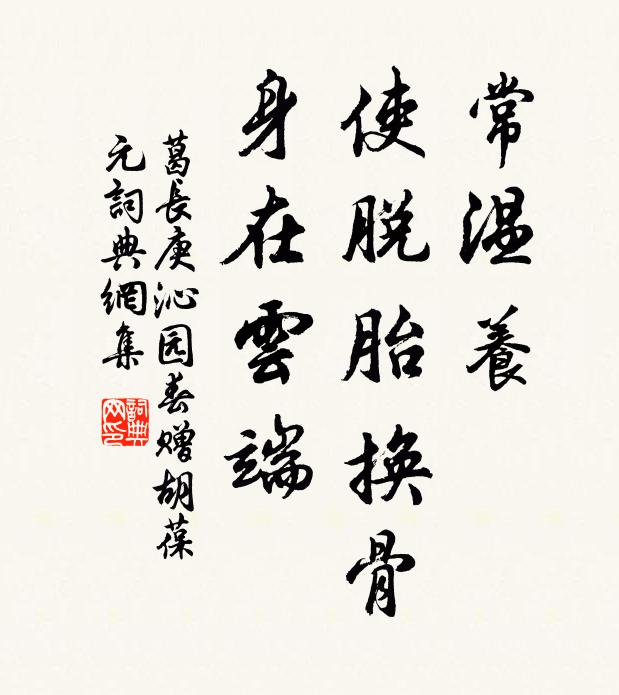 常溫養
使脫胎換骨
身在雲端
葛長庚沁园春赠胡葆
元詞典網集
詞典
网印